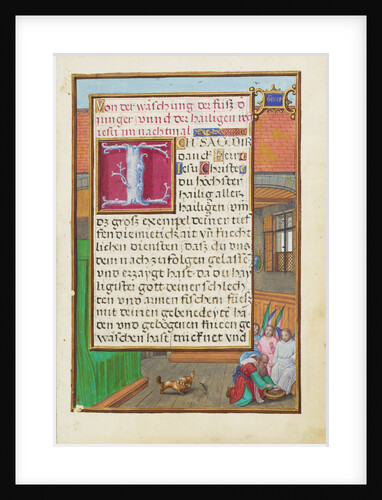 Von der waschung der fusz d
iunger vnnd der heiligen wo
iesu im nachtmal
ICH SAG DIR
danck Herr
Jesu Christe
du höchster
heilig aller
heiligen vm
dz grosz exempel deiner tief
fen diemietickait vn̄ knecht
lichen diensten dasz du vns
dem nachzufolgen gelassē
vnd erzaygt hast da du hay
ligister gott deiner schlech
ten vnd armen fischern fuesz
mit deinen gebenedeytē hā
den vnd gebögenen knieen ge
waschen hast trücknet vnd